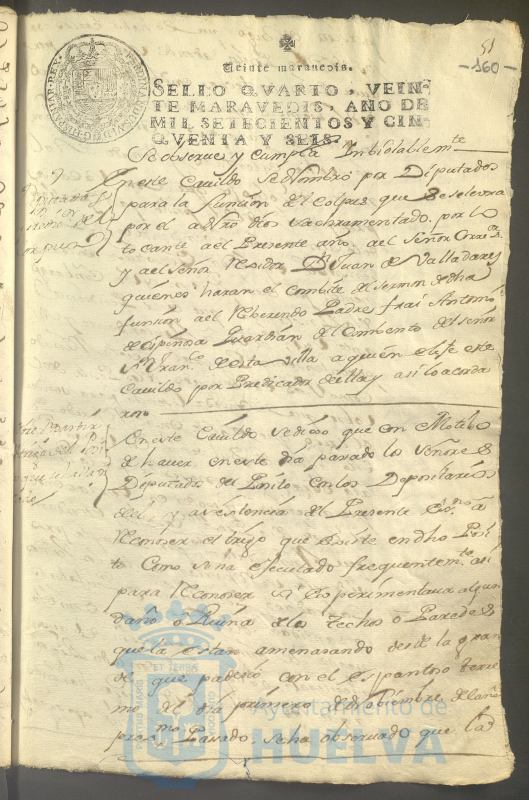 51
-160-
Veinte maravedis.
SELLO QVARTO, VEIN-
TE MARAVEDIS, AÑO DE
MIL SETECIENTOS Y CIN-
QVENTA Y SEIS.
Se observe y cumpla Imbiolablemte
Diputados
En este Cavildo se Nombró por Diputados
para la función del Corpus que se selevra
por el a Nro Dios sachramentado, por lo
tocante a el Presente año, a el Señor
y a el señor Rexidor Dn Juan de Valladares
quienes haran el combite de sermon dha
función a el Reberendo Padre frai Antonio
de espinosa Guardian del Comvento del señor
Sn Franco de esta villa a quien elije este
Cavildo por Predicador de ella y asi lo acorda
ron
En este Cavildo se dixo que con Motibo
de haver en este dia pasado los señores
Diputados del Posito con los Depositarios
de él, y asistencia del Presente Esno a
Reconoser el trigo que existe en dho Posi
to Como se ha ejecutado frequentemte asi
para Reconoser si se esperimentava algun
daño o Ruina de los techos o Paredes
que la estan amenasando desde la gran
de que padeció con el espantoso terre
moto del dia primero de Nobiembre del año
proxmo Pasado, se ha observado que la
ET TERRAE
Ayuntamiento de
HUELVA